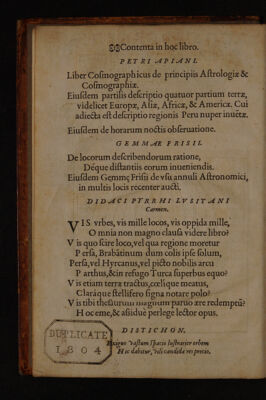 Contenta in hoc libro.
PETRI APIANI.
Liber Cosmographicus de principiis Astrologiæ &
Cosmographiæ.
Eiusdem partilis descriptio quatuor partium terræ,
videlicet Europæ, Asiæ, Africæ, & Americæ. Cui
adiecta est descriptio regionis Peru nuper inuētæ.
Eiusdem de horarum noctis obseruatione.
GEMMAE FRISII
De locorum describendorum ratione,
Déque distantiis eorum inueniendis.
Eiusdem Gemmę Frisii de vsu annuli Astronomici,
in multis locis recenter aucti.
DIDACI PYRRHI LVSITANI
Carmen.
VIS vrbes, vis mille locos, vis oppida mille,
O mnia non magno clausa videre libro?
V is quo scire loco, vel qua regione moretur
P ersa, Brabātinum dum colis ipse solum,
Persa, vel Hyrcanus, vel picto nobilis arcu
P arthus, & in refugo Turca superbus equo?
V is etiam terræ tractus, cœlique meatus,
Claráque stellifero signa notare polo?
V is tibi thesaurum magnum paruo ære redemptū?
H oc eme, & assiduè perlege lector opus.
DISTICHON.
Exiguo vastum spacio lustrarier orbem
Hic dabitur, vili candida res precio.
DUPLICATE
1804